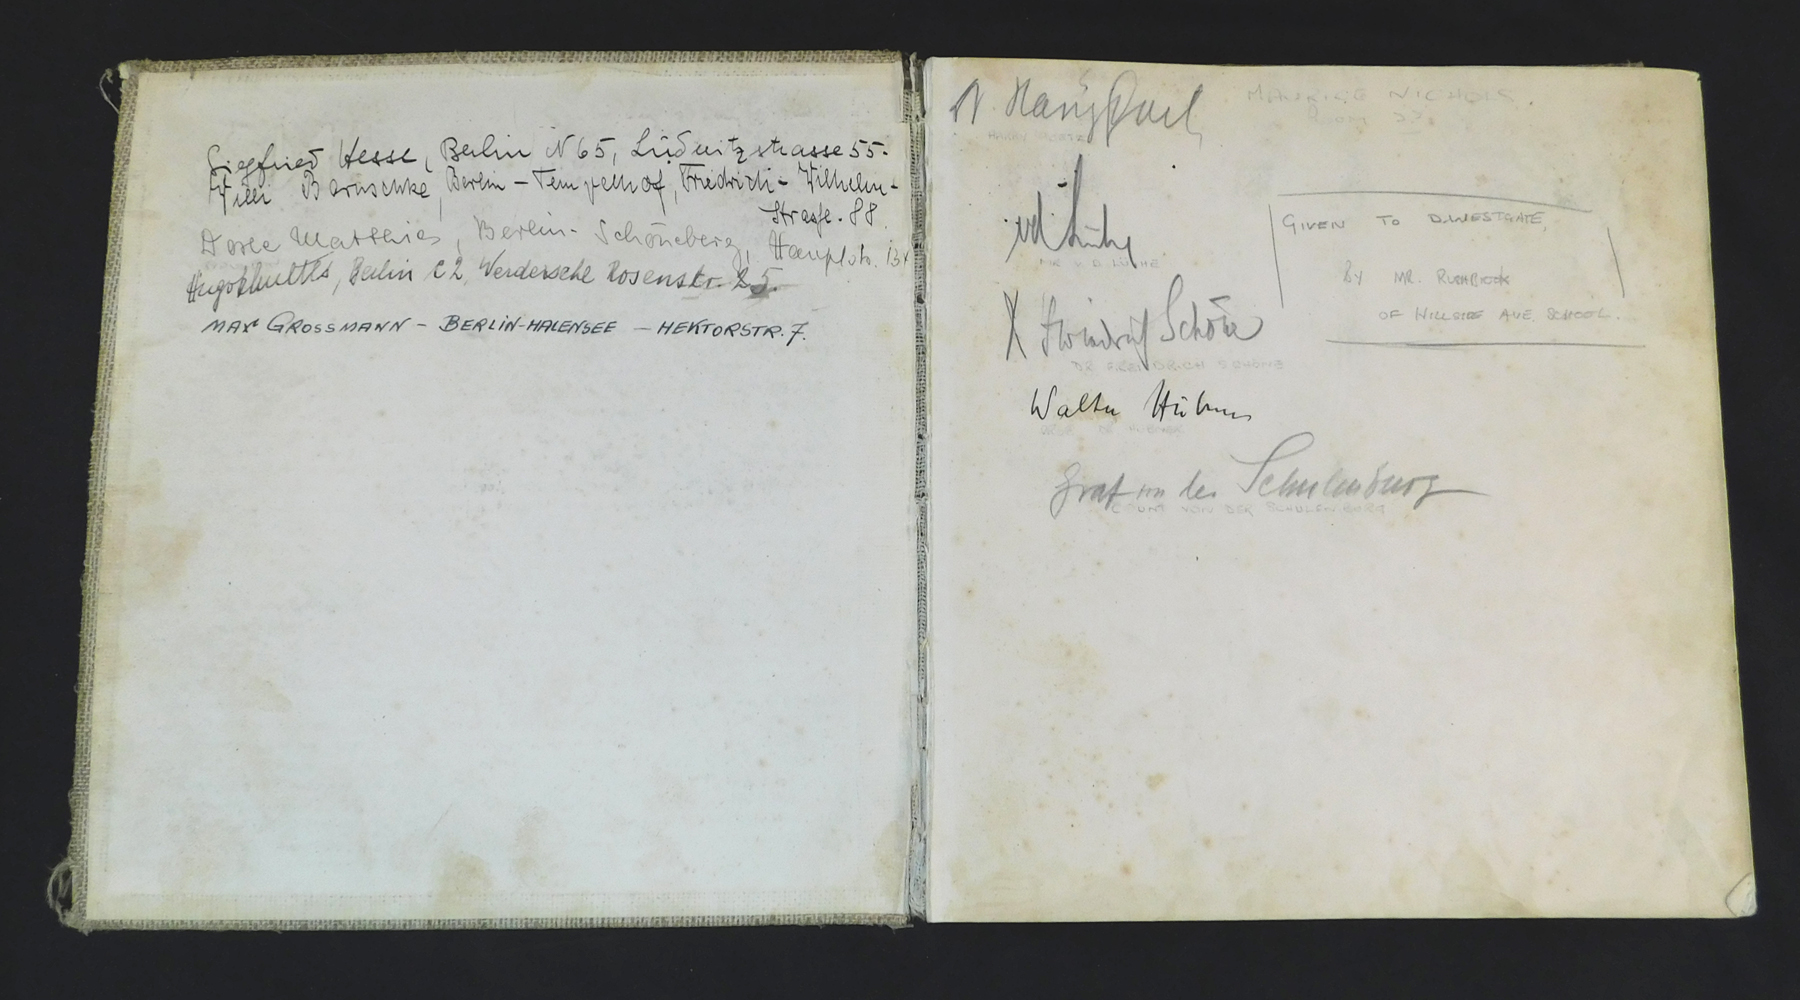 Siegfried Hesse, Berlin N 65, Lüderitzstrasse 55.
Willi Barnschke, Berlin - Tempelhof, Friedrich - Wilhelm -
Strasse. 88.
Matthies, Berlin - Schöneberg, Hauptstr.
Berlin C 2, Werdersche Rosenstr. 25.
MAX GROSSMANN - BERLIN-HALENSEE - HEKTORSTR. 7.
MAURICE NICHOLS.
ROOM
MR V. D. LÜHE
GIVEN TO
BY MR.
OF HILLSIDE AVE. SCHOOL.
X Friedrich Schöne
DR FRIEDRICH SCHÖNE
Walter Hübner
Graf von der Schulenburg
COUNT VON DER SCHULENBURG